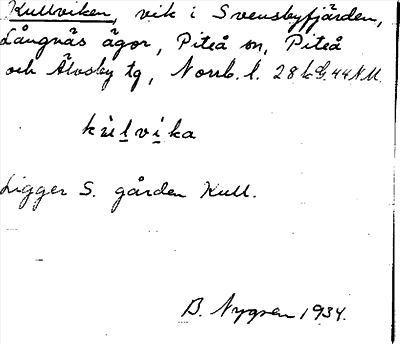 Kullviken, vik i Svensbyfjärden,
Långnäs ägor, Piteå sn, Piteå
och Älvsby tg, Norrb. l. 28
kùlvika
Ligger S. gården Kull.
B. Nygren 1934.